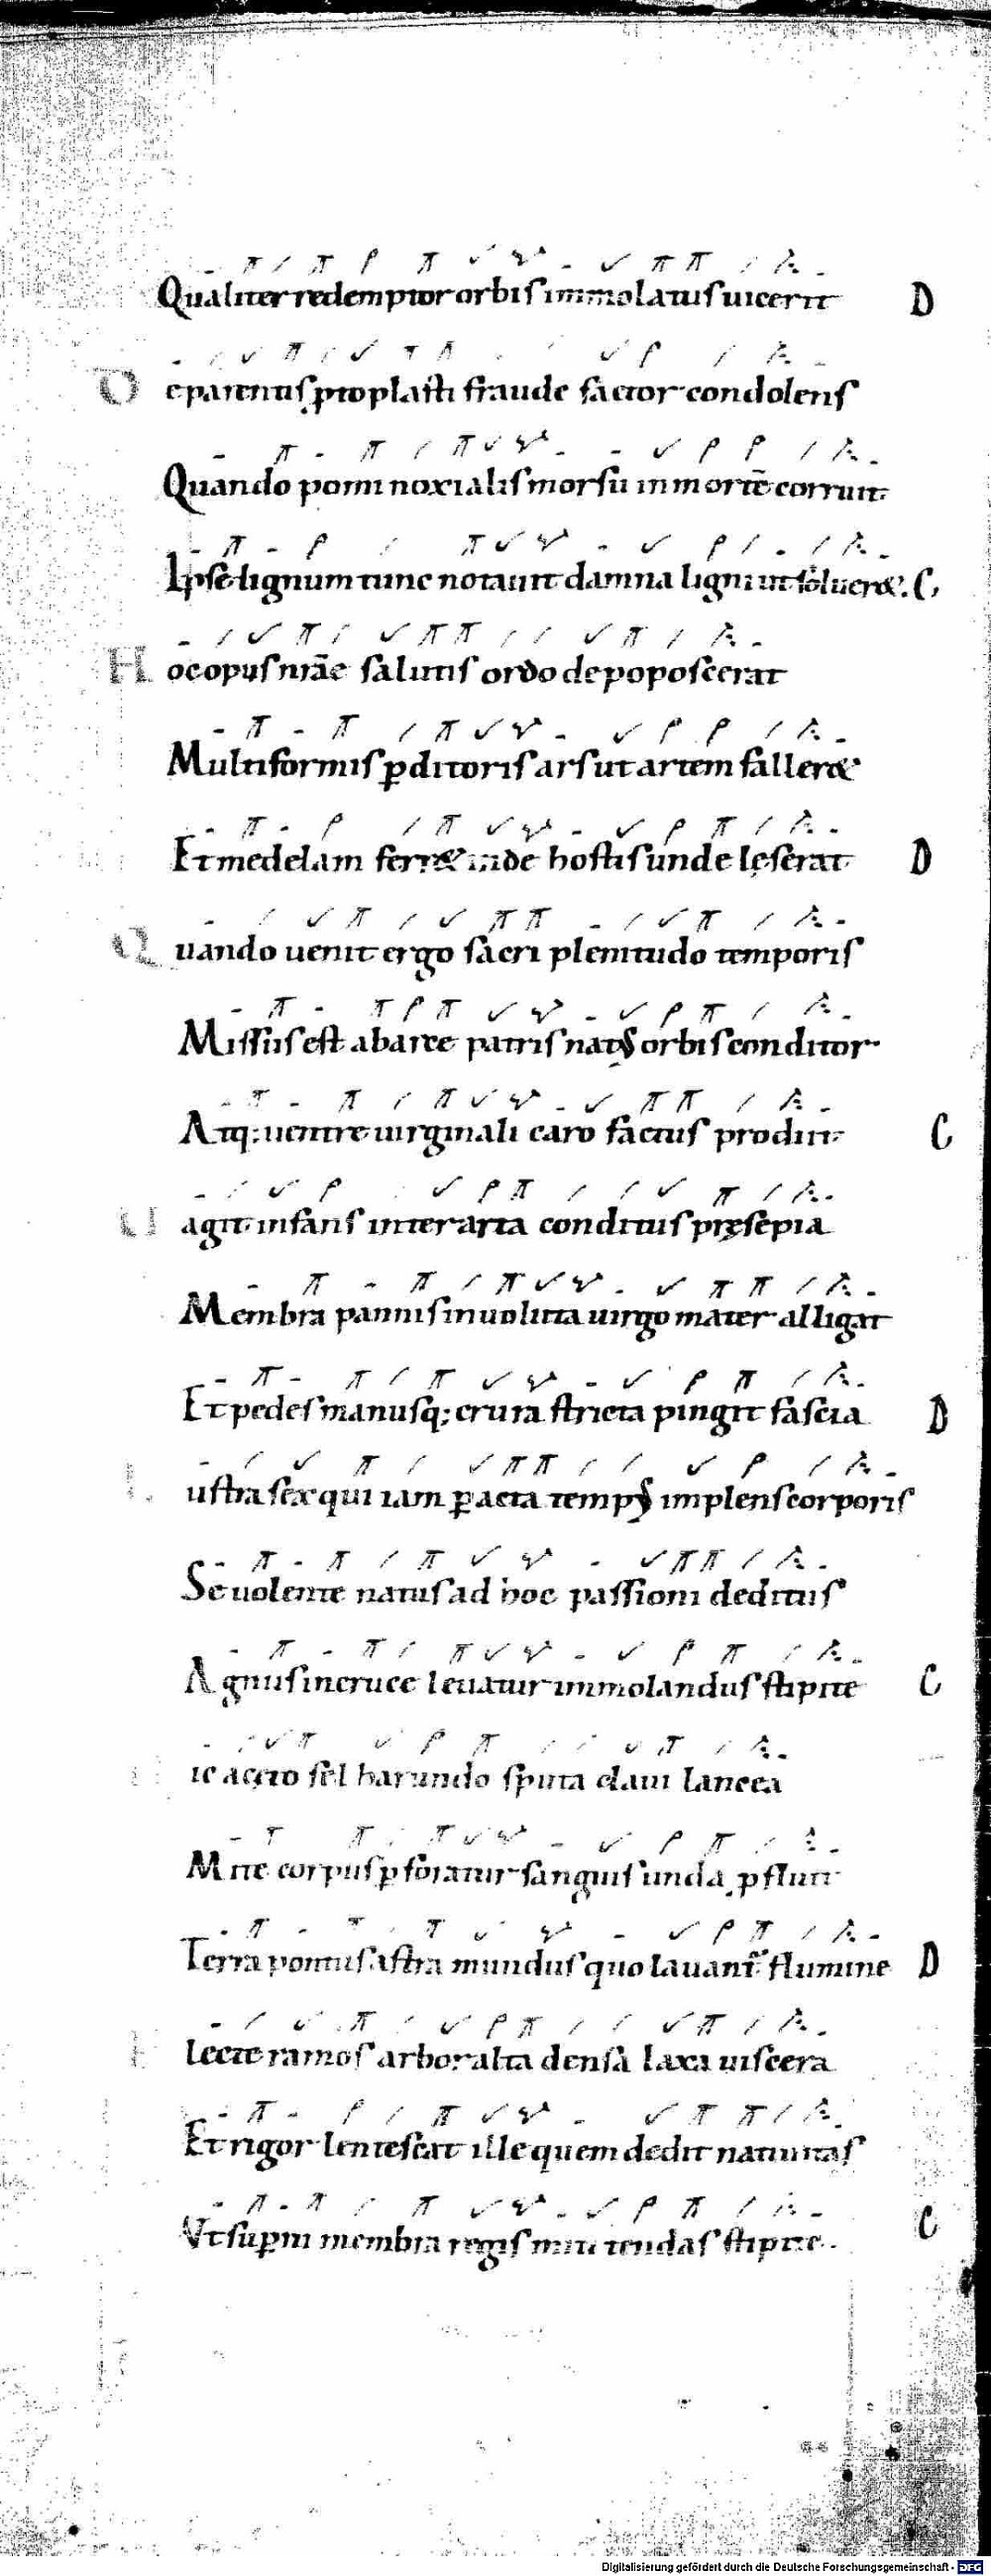 Qualiter redemptor orbis immolatus uicerit D
De parentis protoplasti fraude factor condolens
Quando pomi noxialis morsu in mortē corruit
Ipse lignum tunc notauit damna ligni ut solueret. C
Hoc opus nr̄ae salutis ordo depoposcerat
Multiformis p̲ditoris ars ut artem falleret
Et medelam ferret inde hostis unde lęserat D
Quando uenit ergo sacri plenitudo temporis
Missus est ab arce patris natus orbis conditor
Atq; uentre uirginali caro factus prodiit C
Uagit infans inter arta conditus pręsepia
Membra pannis inuoluta uirgo mater alligat
Et pedes manusq; crura stricta pingit fascia D
Lustra sex qui iam p̲acta tempus implens corporis
Se uolente natus ad hoc passioni deditus
Agnus in cruce leuatur immolandus stipite C
ic acęto fel harundo sputa claui lancea
Mite corpus p̲foratur sanguis unda p̲fluit
Terra pontus astra mundus quo lauant̄ flumine D
Flecte ramos arbor alta densa laxa uiscera
Et rigor lentescat ille quem dedit natiuitas
Vt sup̲ni membra regis miti tendas stipite. C
Digitalisierung gefördert durch die Deutsche Forschungsgemeinschaft - DFG